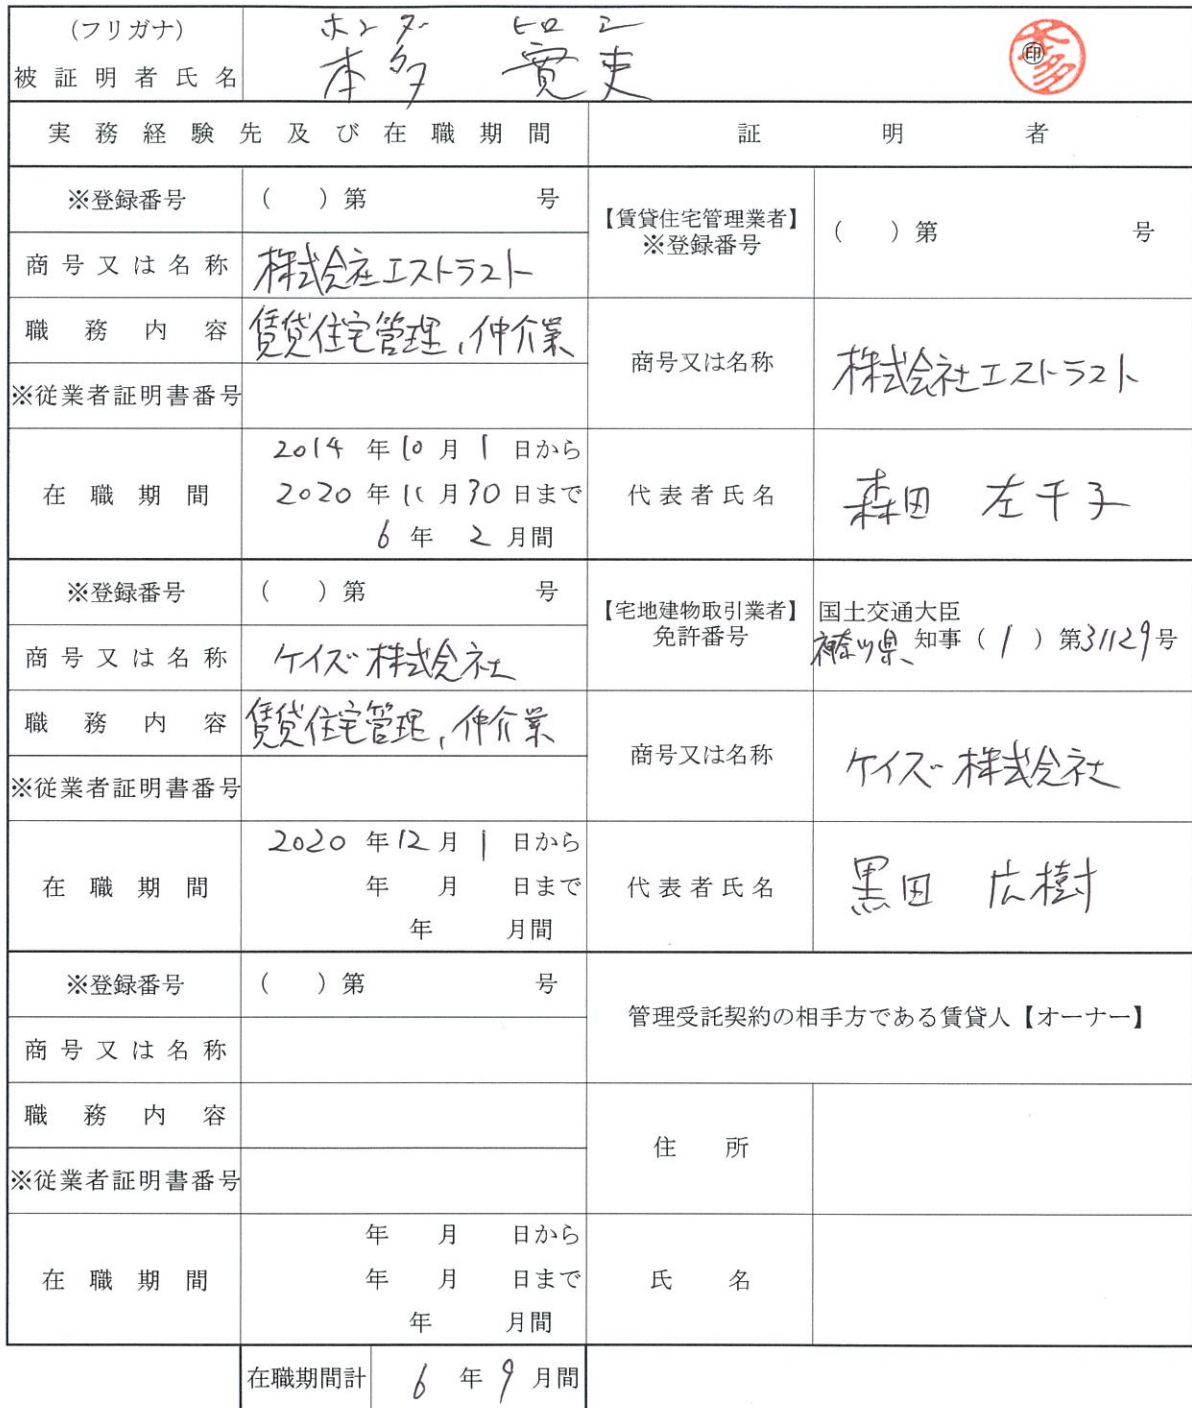 (フリガナ) ホンダ ヒロシ
被証明者氏名 本多 寛吏 ㊞ 本多
実務経験先及び在職期間 証明者
※登録番号 ( )第 号
商号又は名称 株式会社エストラスト
職務内容 賃貸住宅管理,仲介業
※従業者証明書番号
在職期間 2014年10月1日から
2020年11月30日まで
6年2月間
【賃貸住宅管理業者】
※登録番号 ( )第 号
商号又は名称 株式会社エストラスト
代表者氏名 森田 左千子
※登録番号 ( )第 号
商号又は名称 ケイズ株式会社
職務内容 賃貸住宅管理,仲介業
※従業者証明書番号
在職期間 2020年12月1日から
年 月 日まで
年 月間
【宅地建物取引業者】
免許番号
国土交通大臣
神奈川県 知事(1)第31129号
商号又は名称 ケイズ株式会社
代表者氏名 黒田 広樹
※登録番号 ( )第 号
商号又は名称
職務内容
※従業者証明書番号
在職期間 年 月 日から
年 月 日まで
年 月間
管理受託契約の相手方である賃貸人【オーナー】
住所
氏名
在職期間計 6年9月間